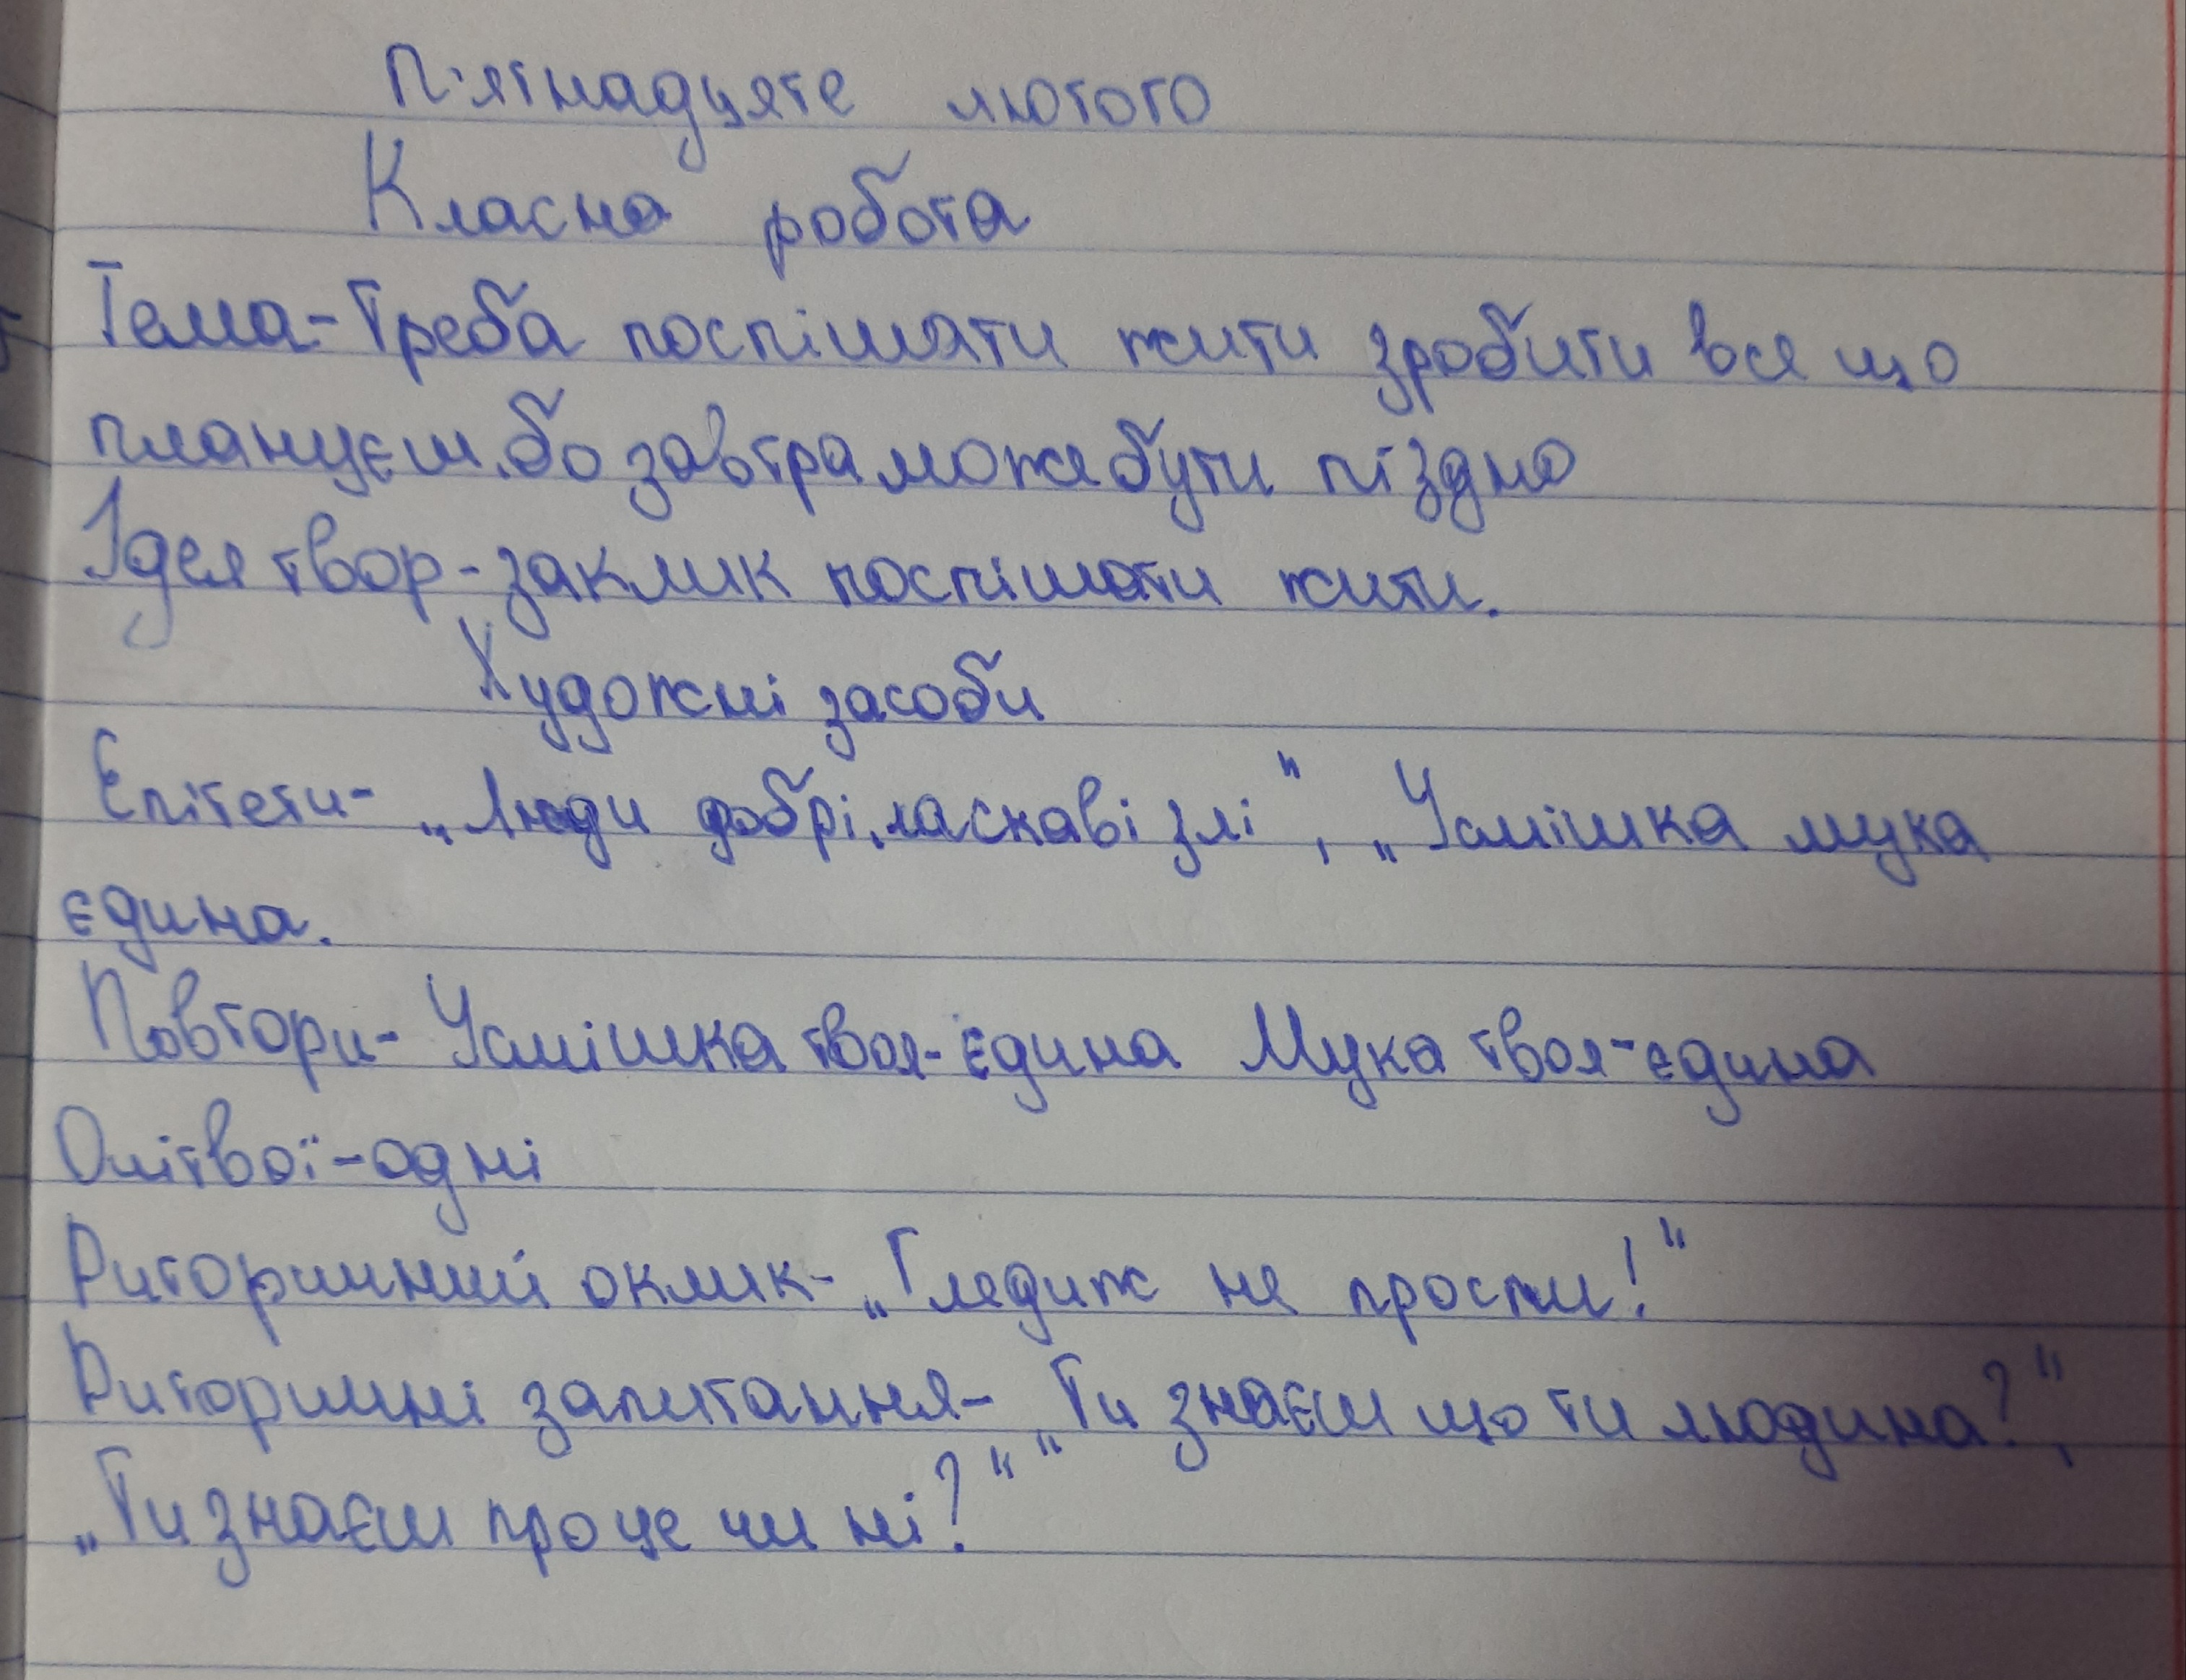 П'ятнадцяте лютого
Класна робота
Тема-Треба поспішати жити зробити все що
плануєш, бо завтра може бути піздно
Ідея твор-заклик поспішати жити.
Художні засоби
Епітети- „Люди добрі, ласкаві злі", „Усмішка мука
єдина.
Повтори- Усмішка твоя-єдина Мука твоя-єдина
Очі твої-одні
Риторичний оклик- „Глядиж не проспи!"
Риторичні запитання- „Ти знаєш що ти людина?",
„Ти знаєш про це чи ні?"